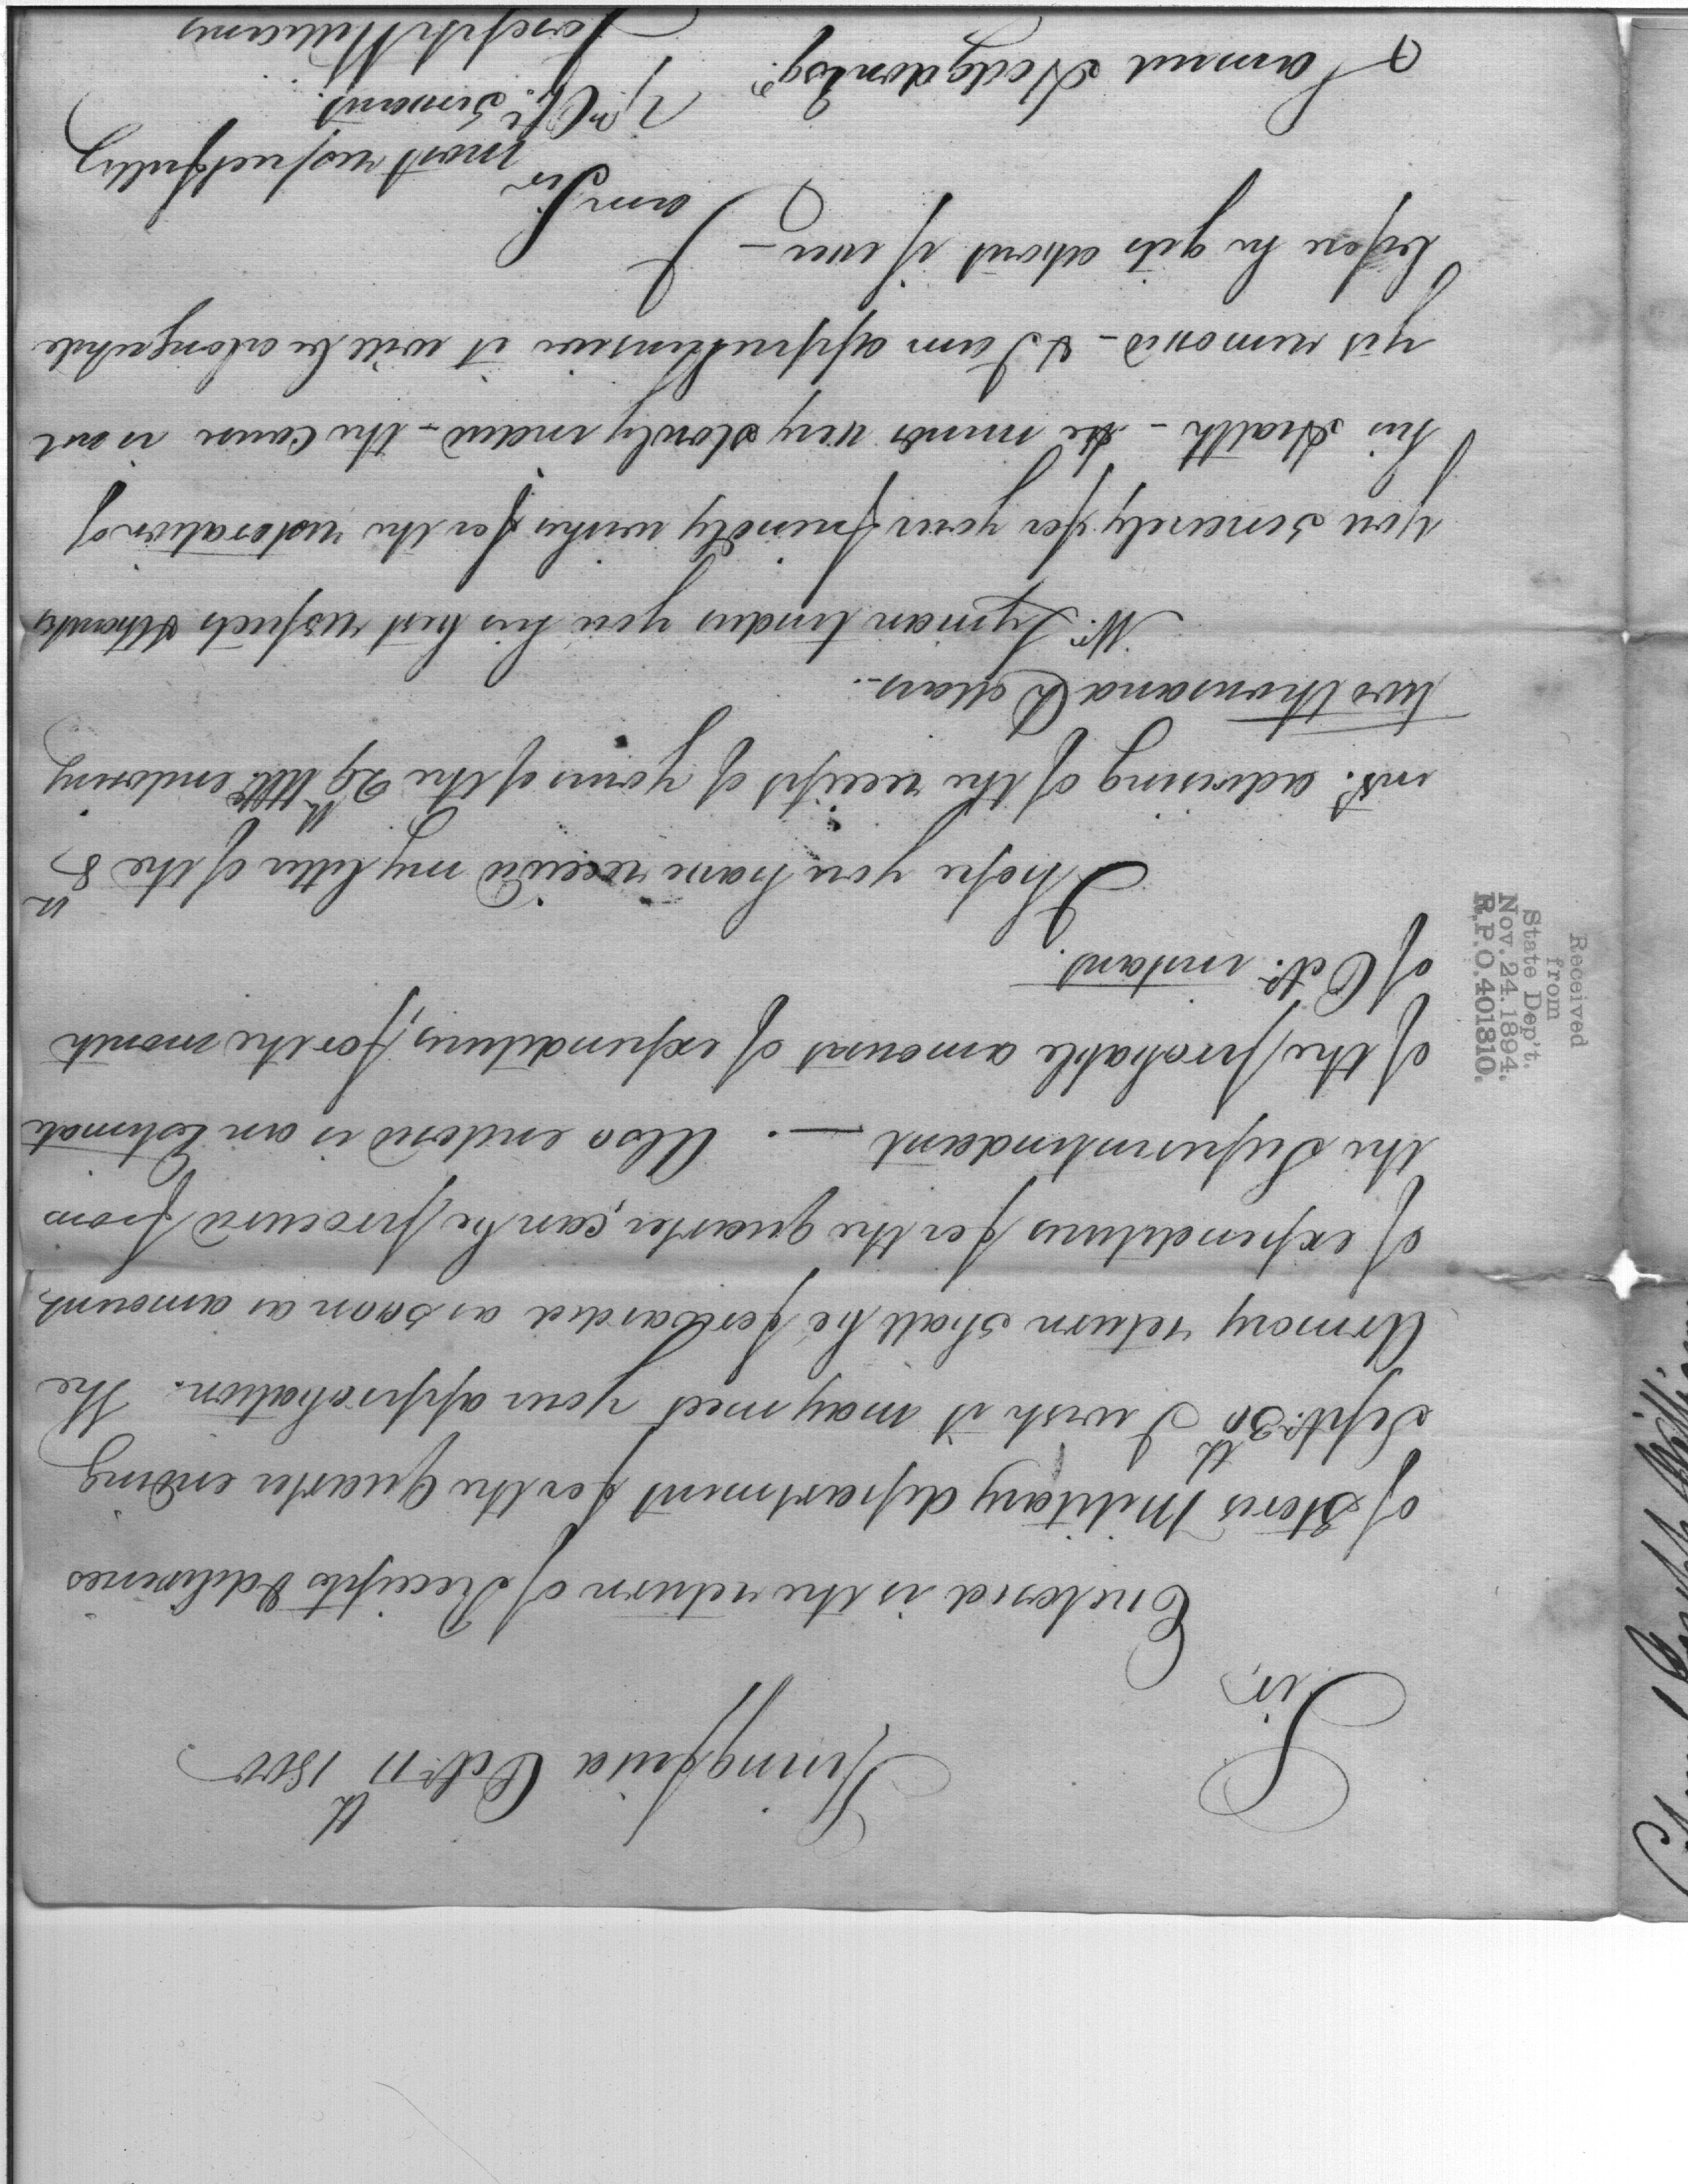 Springfield Octr. 11th 1800
Sir,
Enclosed is the return of Receipts & deliveries
of Stores Military department for the quarter ending
Septr. 30th I wish it may meet your approbation. The
Armory return shall be forwarded as soon as amount
of expenditures for the quarter, can be procured from
the Superintendant —. Also enclosed is an Estimate
of the probable amount of expenditures, for the month
of Octr. instant.
I hope you have received my letter of the 8th
inst. advising of the receipt of yours of the 29th Ulto enclosing
two thousand Dollars—
Mr. Lyman tenders you his best respects & thanks
you sincerely for your friendly wishes for the restoration of
his Health - he mends very slowly indeed - the cause is not
yet removed - & I am apprehensive it will be a long while
before he gets about if ever —
I am Sir
most respectfully
Yr. Obt. Servant.
Joseph Williams
Samuel Hodgdon Esqr.
Received
from
State Dep't.
Nov. 24. 1894.
R.P.O. 401810.
Joseph Williams